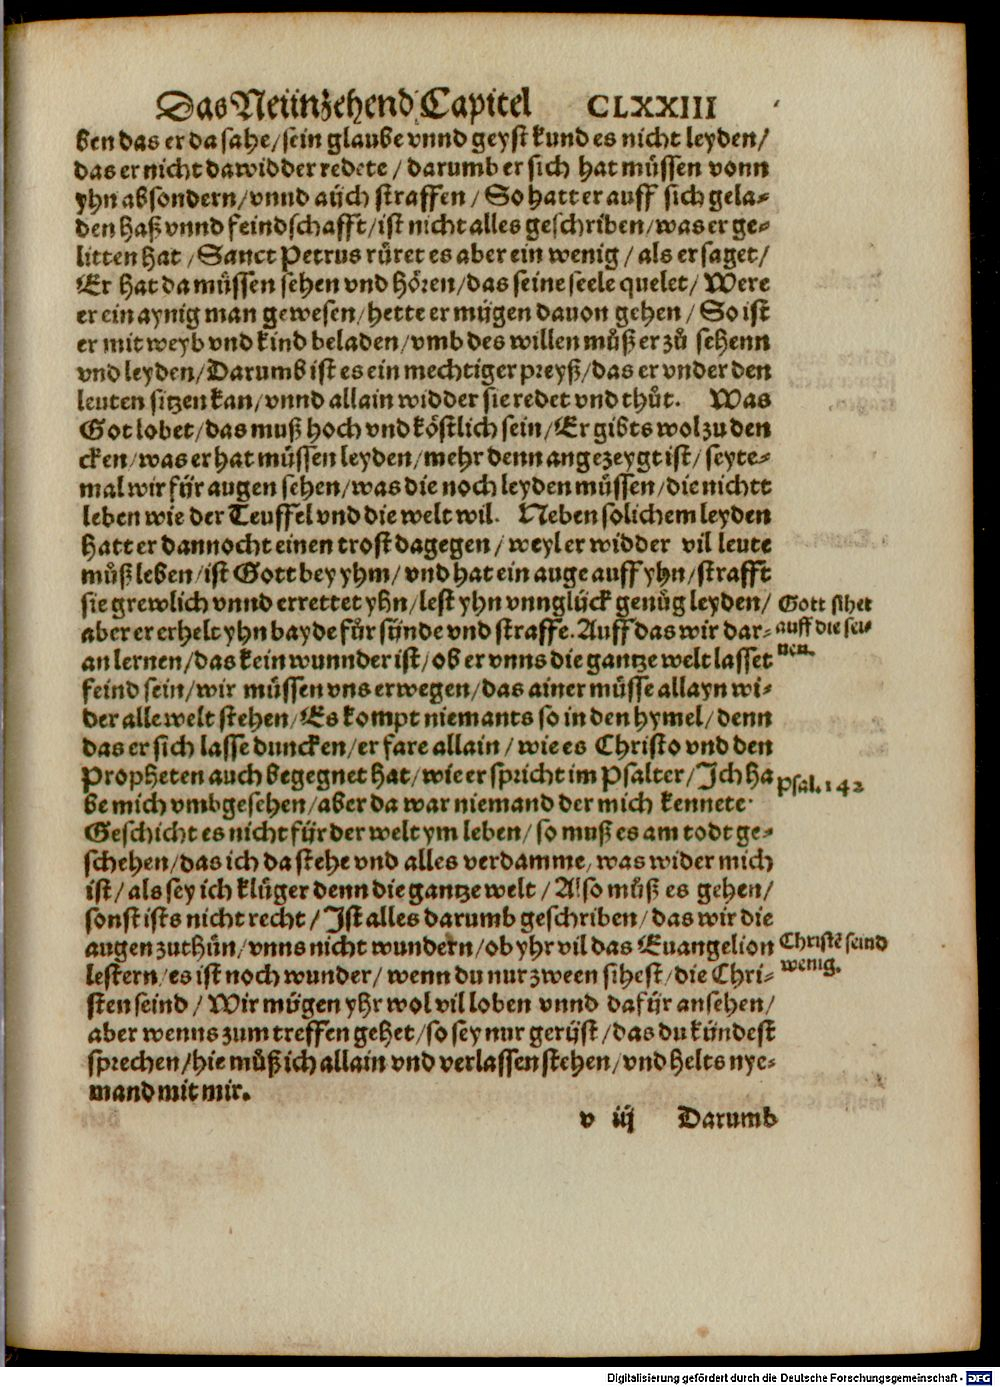 Das Neünzehend Capitel CLXXIII
ben das er da sahe/ sein glaube vnnd geyst kund es nicht leyden/
das er nicht dawidder redete / darumb er sich hat müssen vonn
yhn absondern/ vnnd aüch straffen / So hatt er auff sich gela⸗
den haß vnnd feindschafft/ ist nicht alles geschriben/ was er ge⸗
litten hat / Sanct Petrus rüret es aber ein wenig / als er saget/
Er hat da müssen sehen vnd hören/ das seine seele quelet/ Were
er ein aynig man gewesen/ hette er mügen dauon gehen / So ist
er mit weyb vnd kind beladen/ vmb des willen müß er zů sehenn
vnd leyden/ Darumb ist es ein mechtiger preyß/ das er vnder den
leuten sitzen kan/ vnnd allain widder sie redet vnd thůt. Was
Got lobet/ das muß hoch vnd köstlich sein/ Er gibts wol zu den
cken/ was er hat müssen leyden/ mehr denn angezeygt ist/ seyte⸗
mal wir für augen sehen/ was die noch leyden müssen/ die nichtt
leben wie der Teuffel vnd die welt wil. Neben solichem leyden
hatt er dannocht einen trost dagegen / weyl er widder vil leute
můß leben/ ist Gott bey yhm/ vnd hat ein auge auff yhn/ strafft
sie grewlich vnnd errettet yhn/ lest yhn vnnglück genůg leyden/
aber er erhelt yhn bayde für sünde vnd straffe. Auff das wir dar⸗
an lernen/ das kein wunnder ist/ ob er vnns die gantze welt lasset
feind sein/ wir müssen vns erwegen/ das ainer müsse allayn wi⸗
der alle welt stehen/ Es kompt niemants so in den hymel/ denn
das er sich lasse duncken/ er fare allain / wie es Christo vnd den
Propheten auch begegnet hat/ wie er spricht im Psalter/ Ich ha
be mich vmbgesehen/ aber da war niemand der mich kennete.
Geschicht es nicht für der welt ym leben/ so muß es am todt ge⸗
schehen/ das ich da stehe vnd alles verdamme/ was wider mich
ist/ als sey ich klůger denn die gantze welt / Also můß es gehen/
sonst ists nicht recht / Ist alles darumb geschriben/ das wir die
augen zuthůn/ vnns nicht wundern/ ob yhr vil das Euangelion
lestern/ es ist noch wunder/ wenn du nur zween sihest/ die Chri⸗
sten seind / Wir mügen yhr wol vil loben vnnd dafür ansehen/
aber wenns zum treffen gehet/ so sey nur gerüst/ das du kündest
sprechen/ hie můß ich allain vnd verlassen stehen/ vnd helts nye⸗
mand mit mir.
Gott sihet
auff die sei⸗
nen.
Psal. 142
Christē seind
wenig.
v iij Darumb
Digitalisierung gefördert durch die Deutsche Forschungsgemeinschaft - DFG